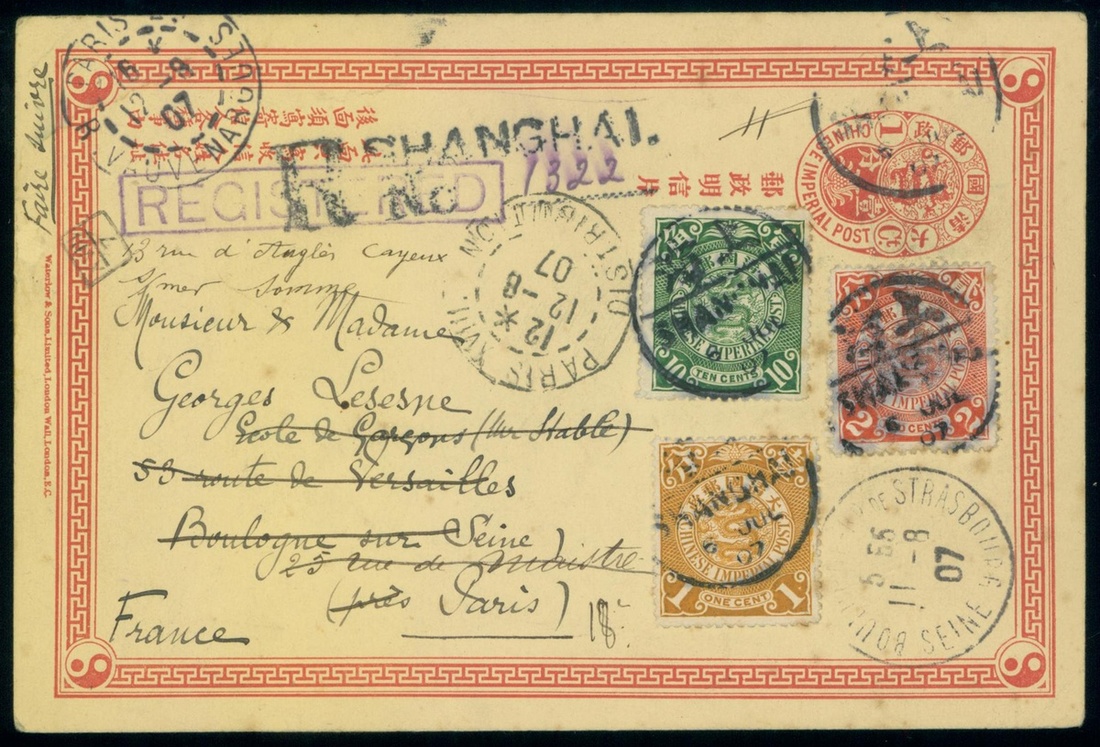 Faire suivre
SHANGHAI.
R No 1322
REGISTERED
郵政明信片
大清國郵政
CHINESE IMPERIAL POST
1
13 rue d'Anglès Cayeux
s/mer Somme
Monsieur & Madame
Georges Lesesne
Ecole de Garçons
53 route de Versailles
Boulogne sur Seine
25 rue de Maistre
(près Paris)
18e
France
Waterlow & Sons, Limited, London Wall, London, E.C.
PARIS XVIII
DISTRIBUTION
12 * 12 -8 07
CHINESE IMPERIAL POST
10 TEN CENTS 10
SHANGHAI
6 JUL 07
CHINESE IMPERIAL POST
2 2
SHANGHAI
6 JUL 07
CHINESE IMPERIAL POST
1 ONE CENT 1
SHANGHAI
6 JUL 07
DE STRASBOURG
5 55
11 -8
07
SEINE
PARIS
12 -8
07